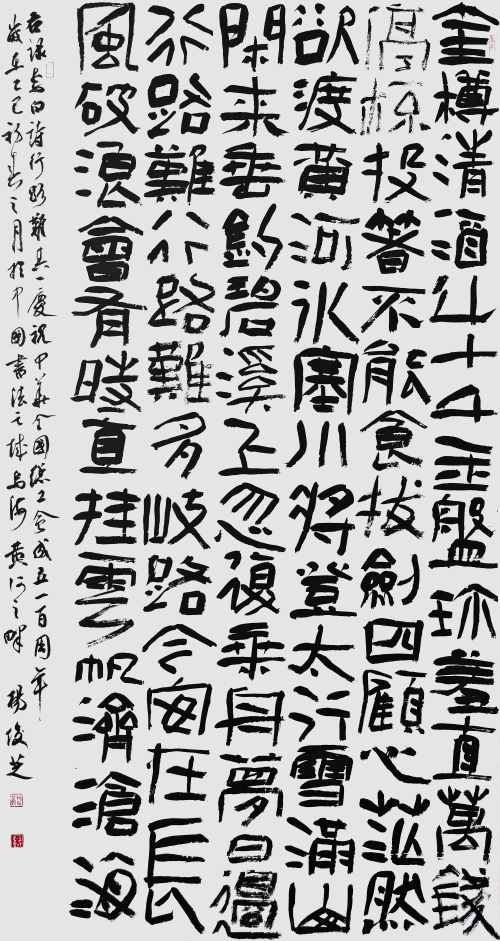 金樽清酒斗十千玉盤珎羞直萬錢
停杯投箸不能食拔劍四顧心茫然
欲渡黃河氷塞川將登太行雪滿山
閑来垂釣碧溪上忽復乘舟夢日邊
行路難行路難多岐路今安在長
風破浪會有時直挂雲帆濟滄海
右録李白诗行路難其一慶祝中華全國總工会成立一百周年
歲在乙巳初春之月於中國書法之城乌海黄河之畔 楊俊芝